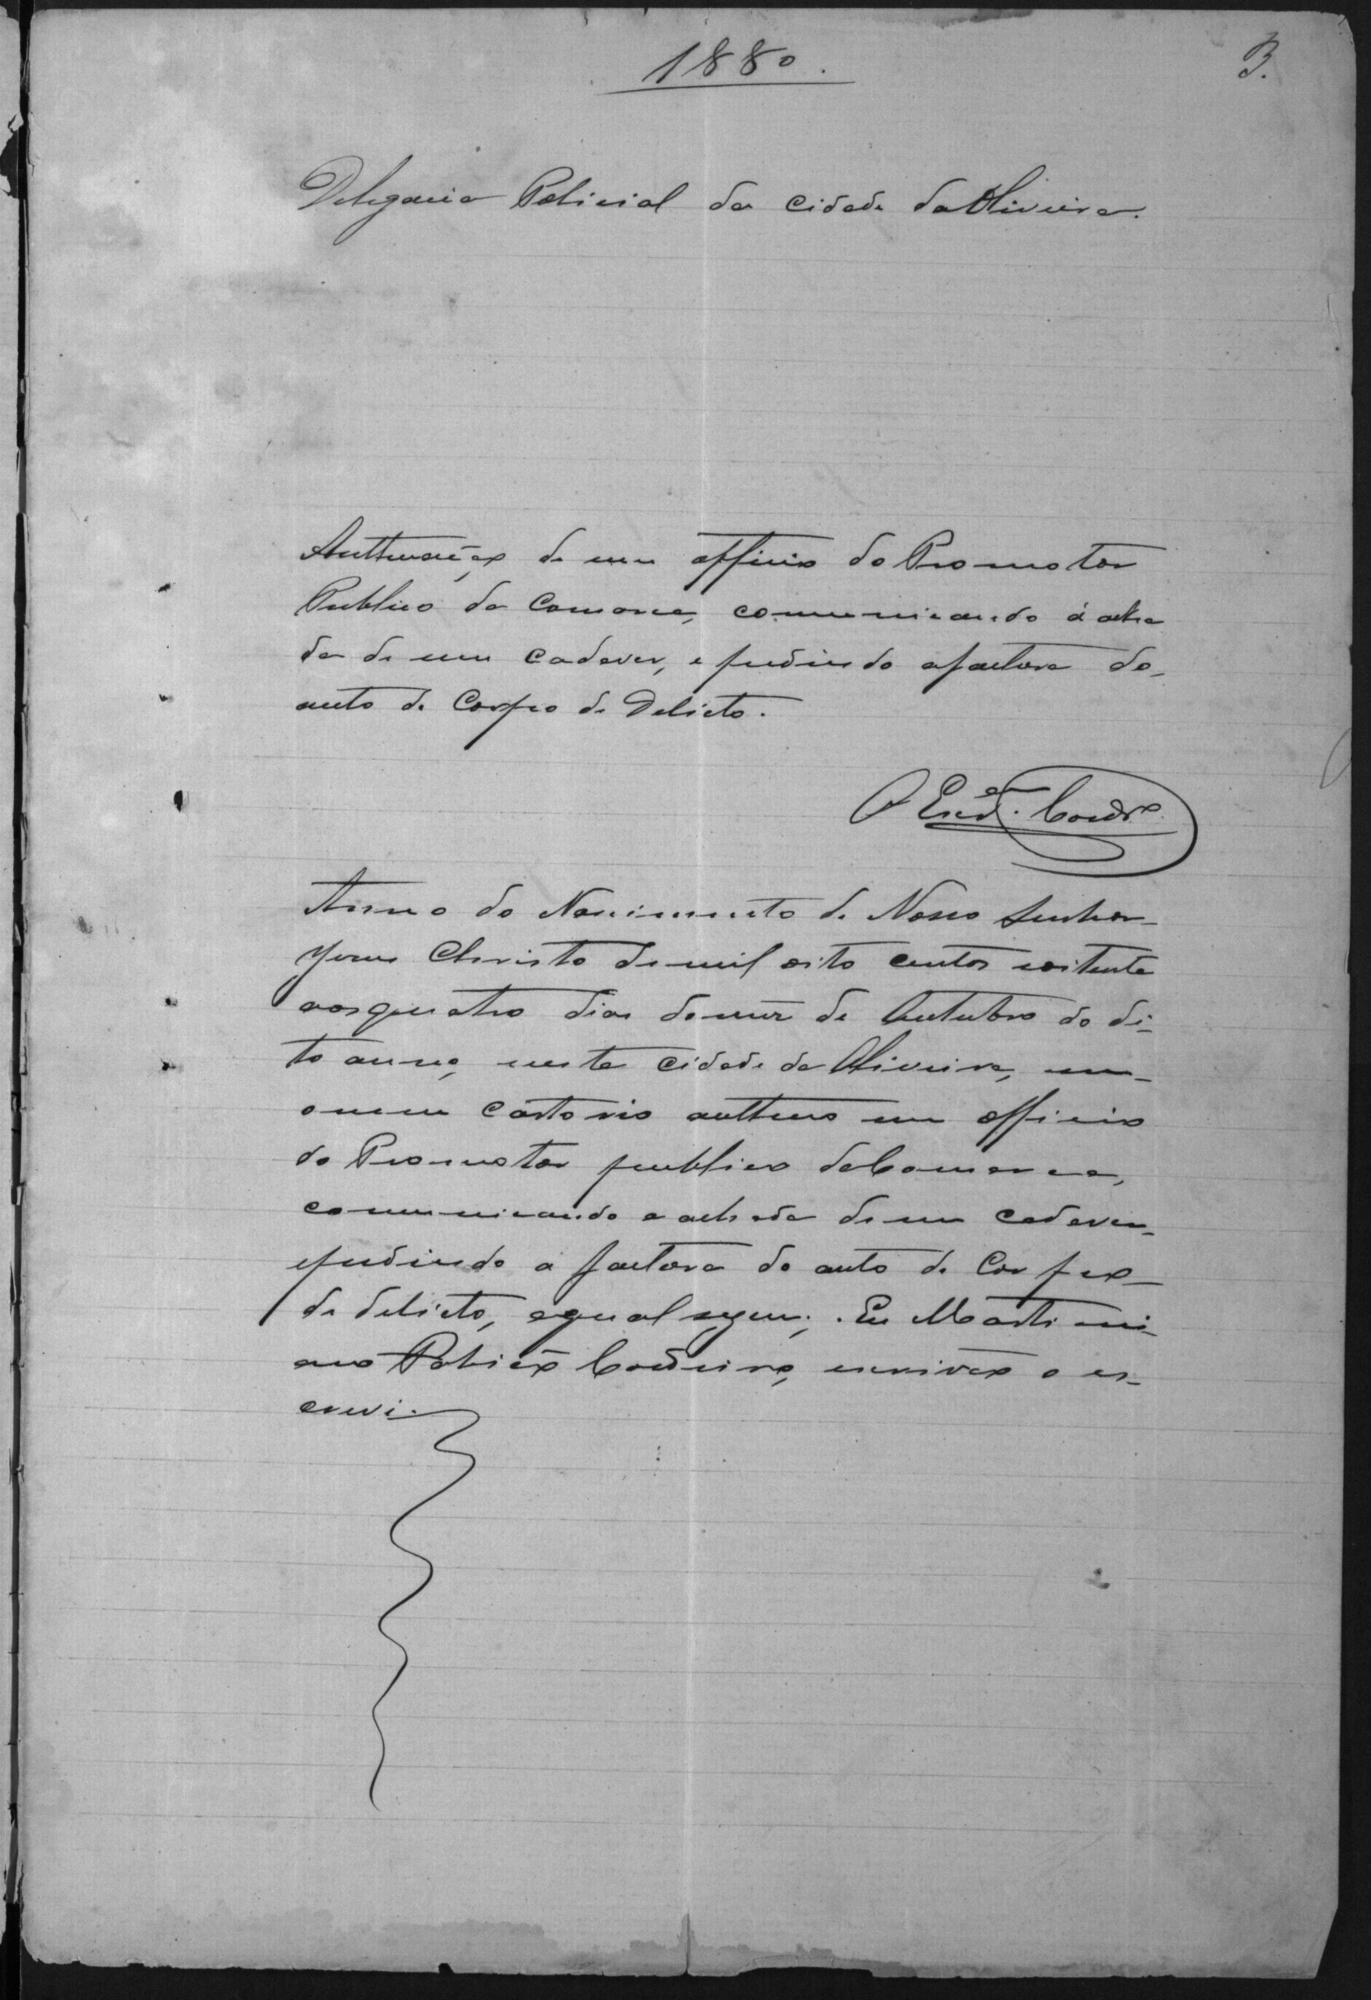 1880.
B.
Delegacia Policial da cidade da Oliveira.
Authuação de um officio do Promotor
Publico da Comarca, communicando á acha
da de um cadaver, e pedindo afactura do
auto de Corpo de Delicto.
O Escr.am Cord.ro
Anno do Nascimento de Nosso Senhor
Jesus Christo de mil oito centos eoitenta
aos quatro dias do mez de Outubro do di-
to anno, nesta cidade da Oliveira, em
o meu cartorio authuo um officio
do Promotor publico da Comarca,
communicando a achada de um cadaver
epedindo a factura do auto de Corpo
de delicto, o qual segue; Eu Martini
ano Patricio Cordeiro, escrivão o es-
crevi.